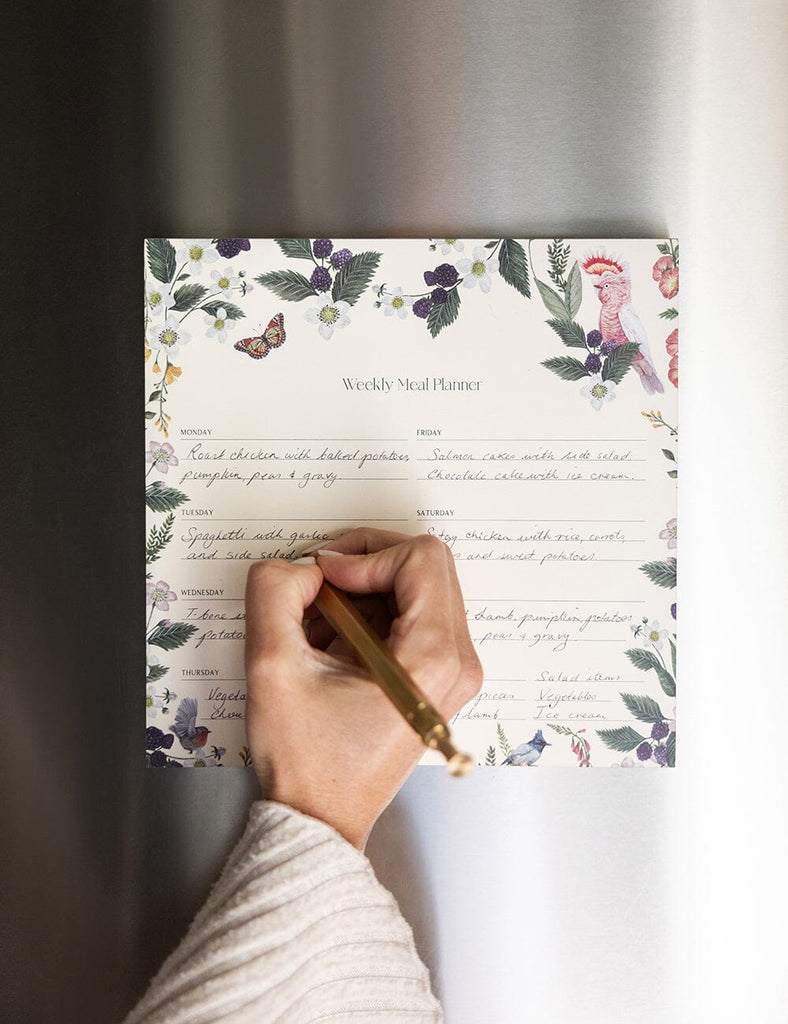 Weekly Meal Planner
MONDAY
Roast chicken with baked potatoes,
pumpkin, peas & gravy.
TUESDAY
Spaghetti with garlic
and side salad.
WEDNESDAY
T-bone
potato
THURSDAY
FRIDAY
Salmon cakes with side salad
Chocolate cake with ice cream.
SATURDAY
chicken with rice, carrots,
and sweet potatoes
lamb, pumpkin, potatoes
peas & gravy.
Salad items
pieces Vegetables
lamb Ice cream